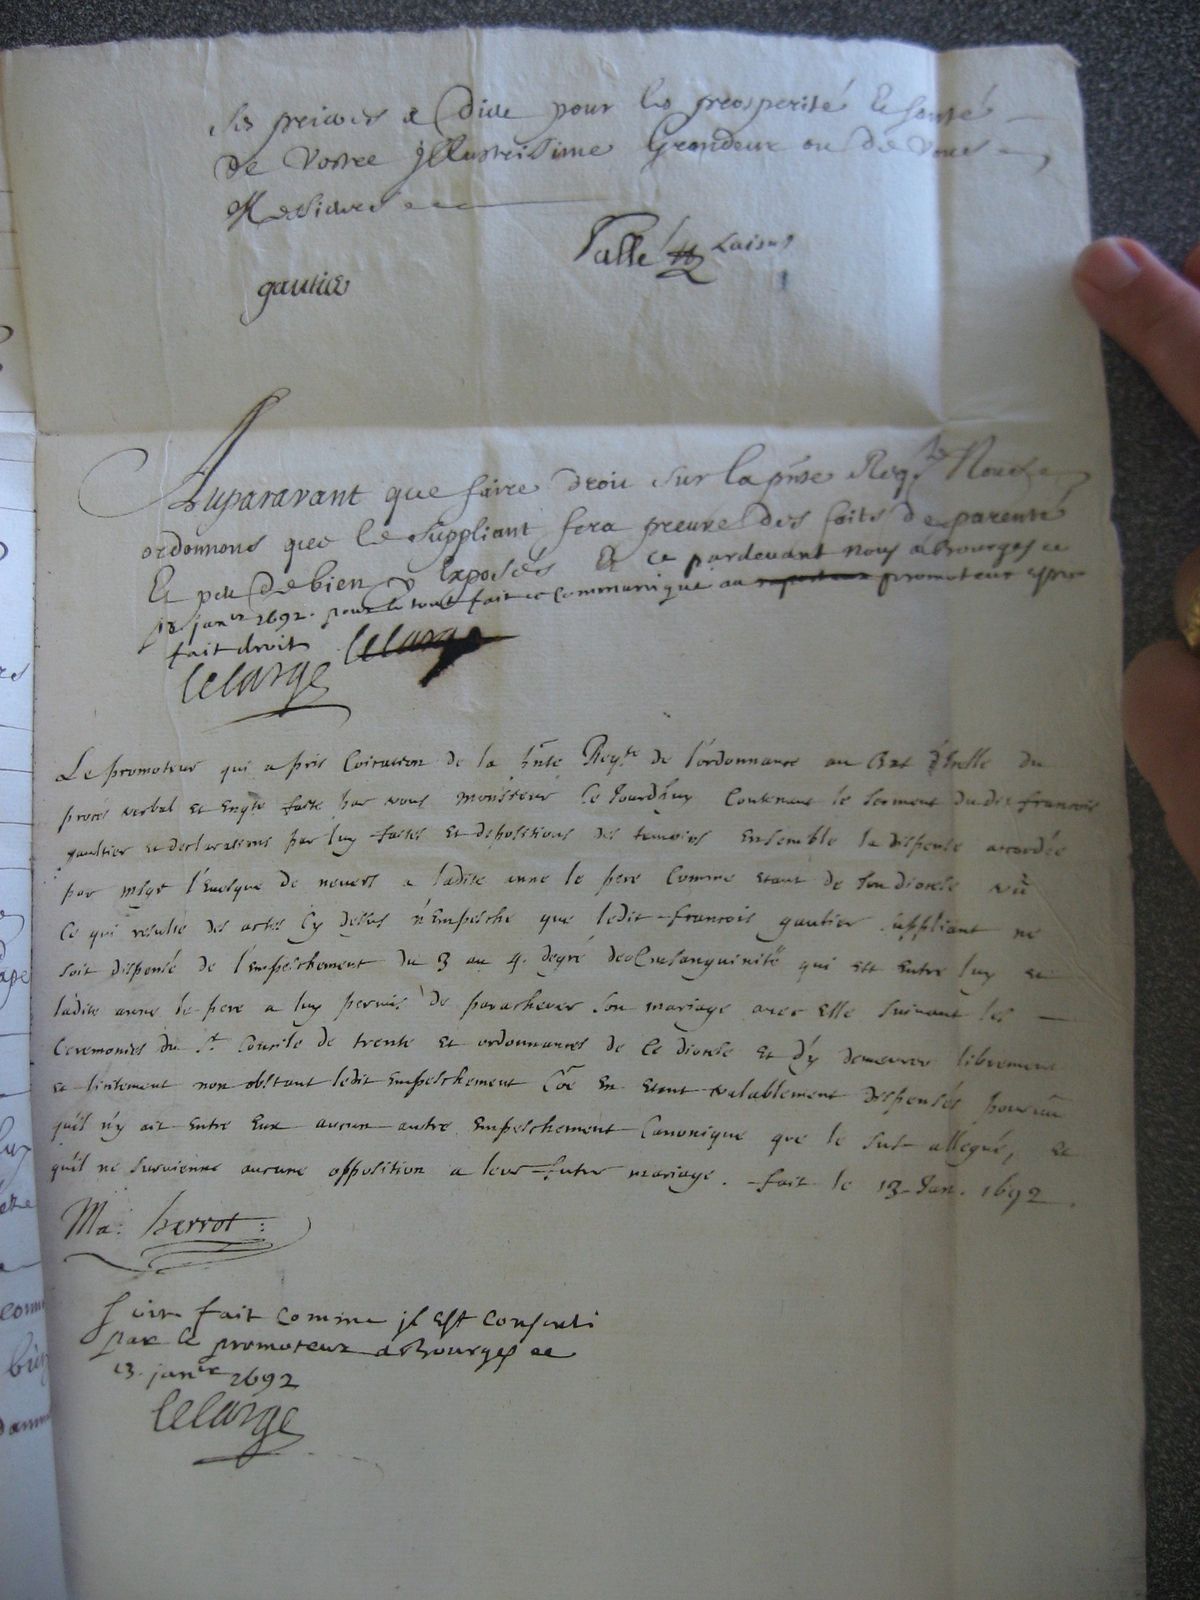 ses prieres a Dieu pour la prosperité & santé
de Vostre jllustrissime Grandeur ou de vous
Messieurs
Tallé
gautier
Auparavant que faire droit sur la pnte Reqte Nous
ordonnons que le suppliant fera preuve des faits de parenté
Et peu De bien y Exposés Et ce pardevant nous a Bourges ce
12 janer 1692. pour le tout fait et communiqué au promoteur estre
fait droit lelarge
lelarge
Le promoteur qui a pris Coīcation de la pnte Reqte de l'ordonnance au bas d'Icelle du
procés verbal et Enqte faite par vous monsieur Ce Jourdhuy Contenant le serment dudit francois
gaultier et declarations par luy faites et depositions des temoins Ensemble la dispense accordée
par msgr l'Evesque de nevers a ladite anne le pere Comme etant de son diocese vû
Ce qui resulte des actes Cy dessus n'Empesche que ledit francois gautier suppliant ne
soit dispensé de l'Empeschement du 3 au 4. degré de Consanguinité qui est Entre luy et
ladite anne le pere a luy permis de parachever son mariage avec Elle suivant les
Ceremonies du St. Concile de trente et ordonnances de Ce diocese et d'y demeurer librement
et licitement non obstant ledit Empeschement Cōe En etant valablement dispensés pourvû
qu'il n'y ait Entre Eux aucun autre Empeschement Canonique que le sus allegué, et
qu'il ne survienne aucune opposition a leur futur mariage. fait le 13 Jan. 1692.
Ma. perrot
soit fait comme jl est consenti
par le promoteur a Bourges ce
13. janer 1692
lelarge